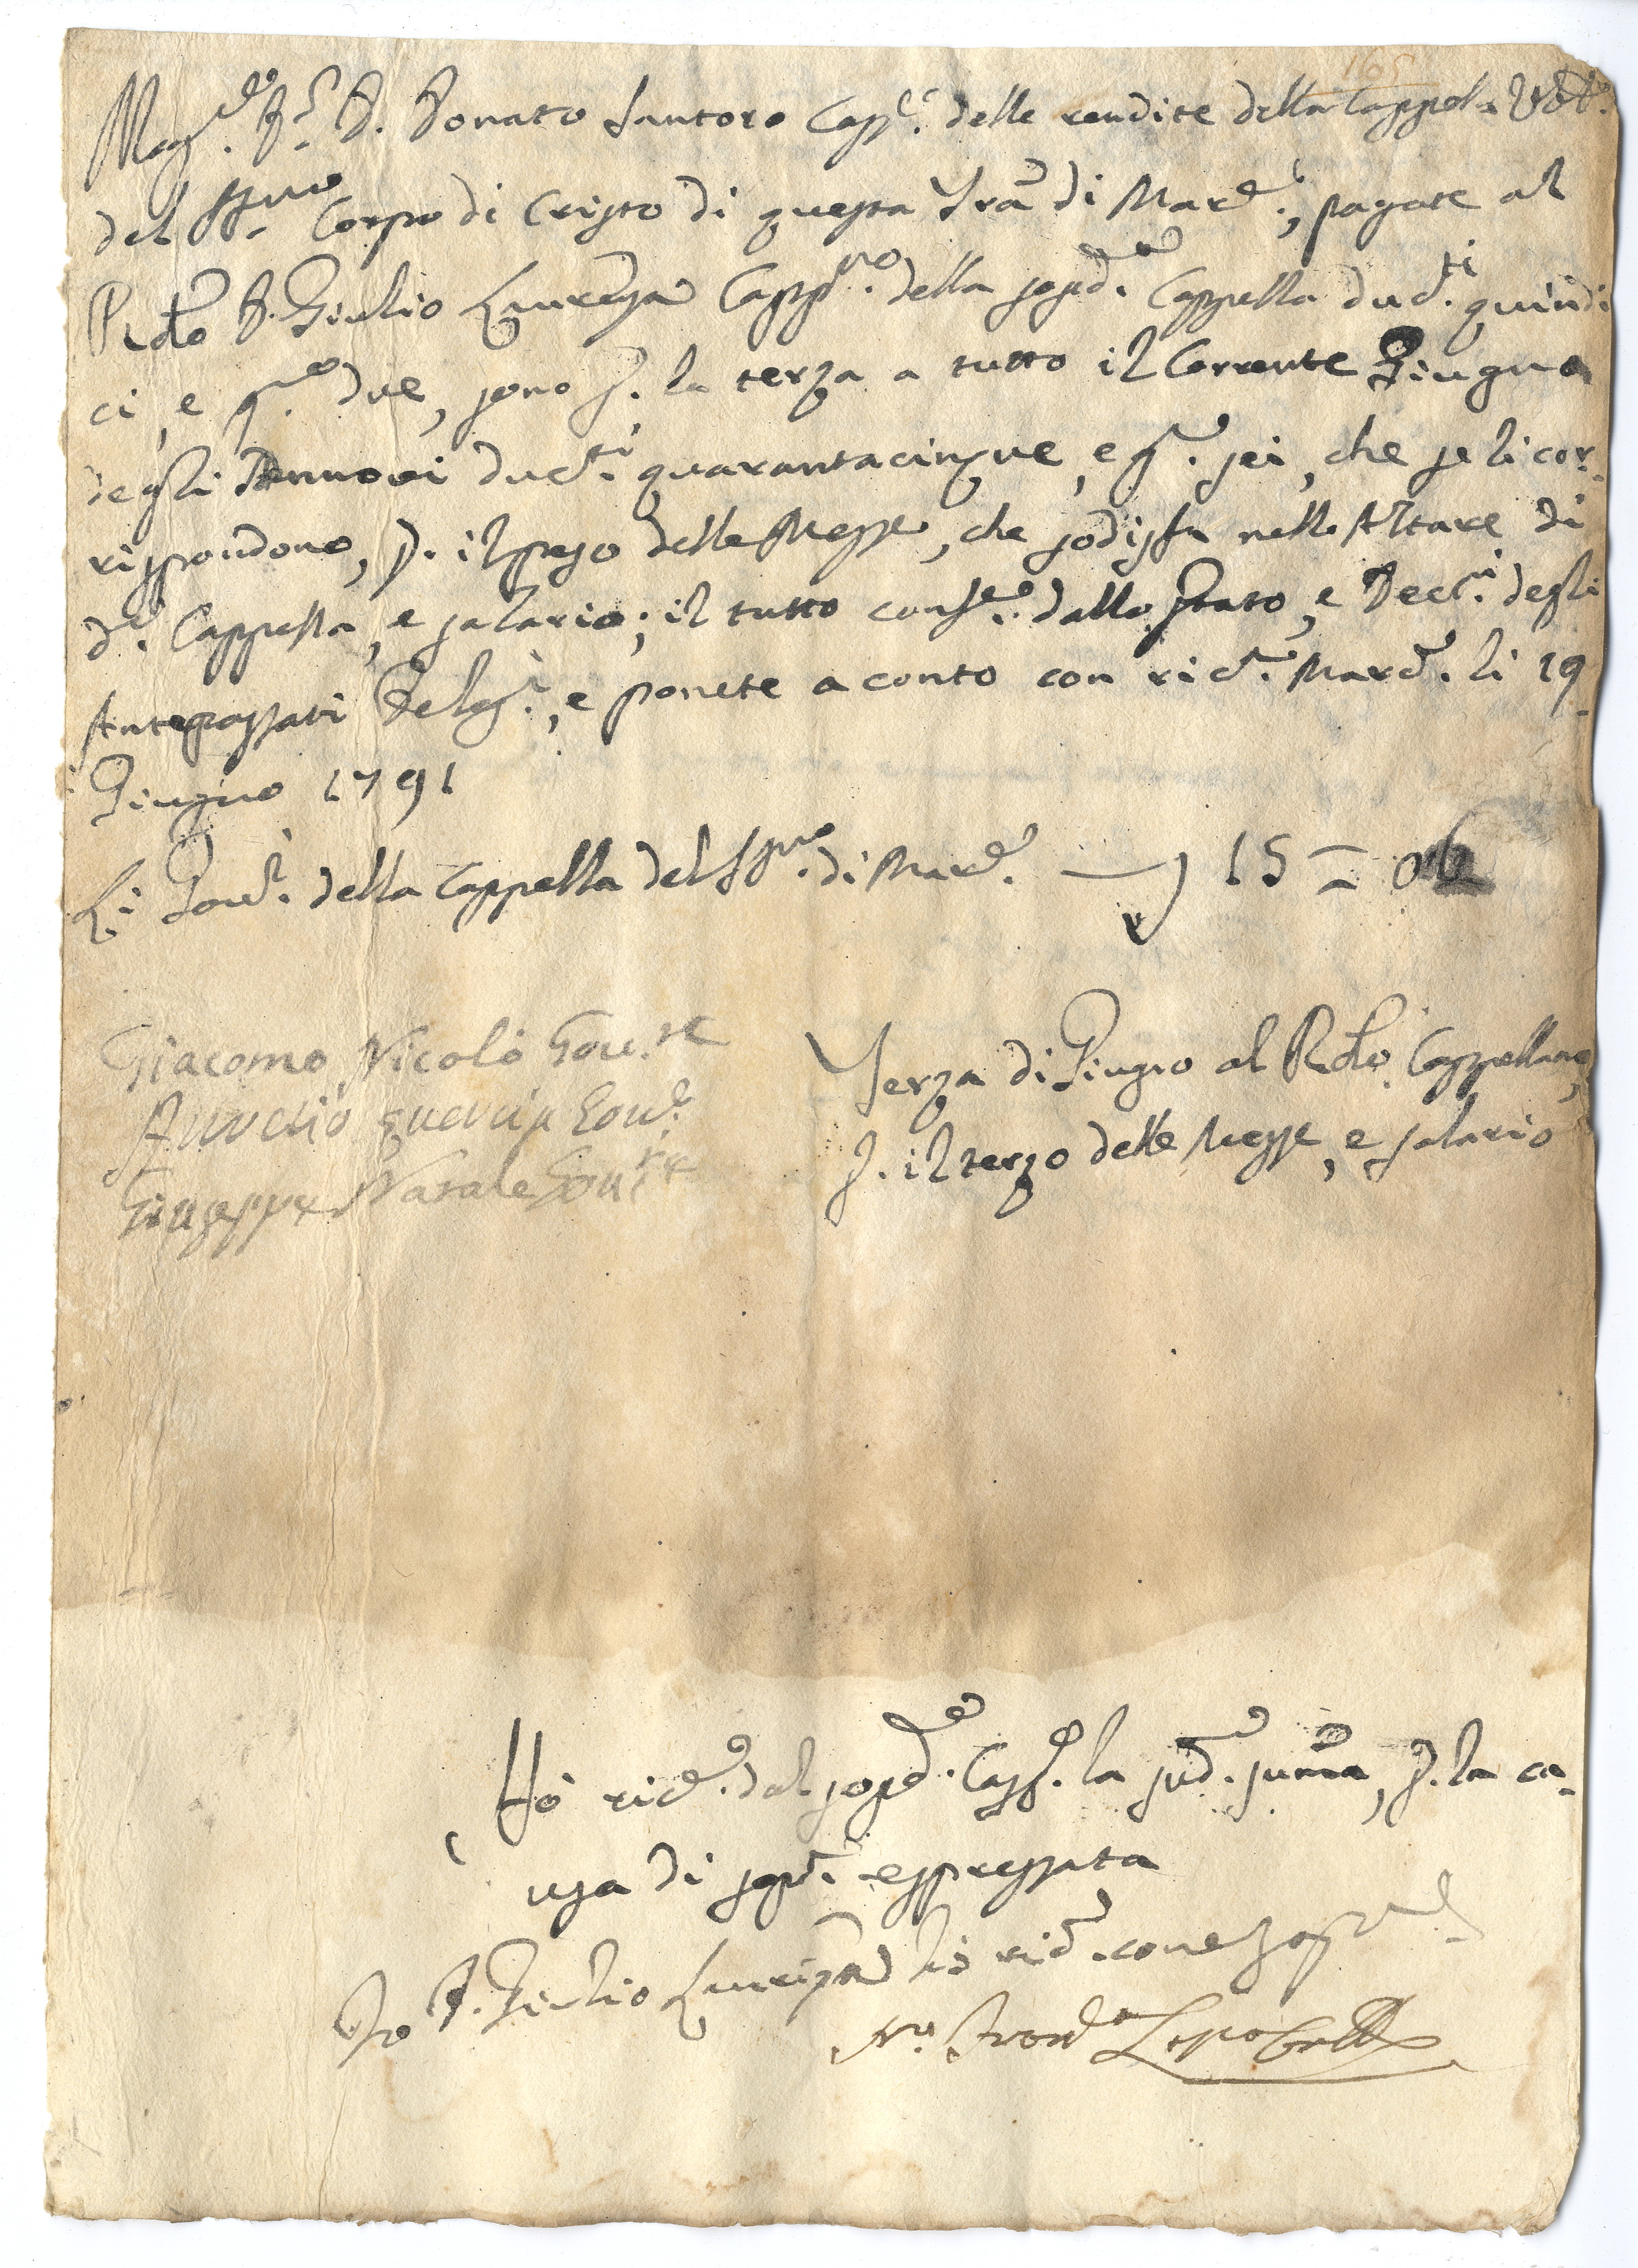 165
Mag.co Sr. D. Donato Santoro Cass.e delle rendite della Cappel.a
del SSmo Corpo di Cristo di questa Tra di Mard.e, pagate al
Rdo D. Giulio Cappno. della sopd.a Cappella ducti. quindi
ci, e gna. due, sono p. la terza a tutto il Corrente Giugno
degli Annovi ducti. quarantacinque, e gna. sei, che se li cor-
rispondono, p. il peso delle Messe, che sodisfa nello Altare di
da. Cappella, e salario; il tutto confe. dallo Stato, e Decti. degli
Antepassati Delegti., e ponete a conto con rica. Mard.e li 19
Giugno 1791
Li Govri. della Cappella del SSmo. di Mard.e — 15 = 02
Giacomo Nicolò Gov.re
Aurelio Quercia Gove.
Giuseppe Natale Govre
Terza di Giugno al Rdo Cappellano,
p. il terzo delle Messe, e salario
Hò rice. dal sopd.o Casse. la sud.a suma, p. la ca-
usa di sopa. espressata
Io D. Giulio hò rice. come sopa.